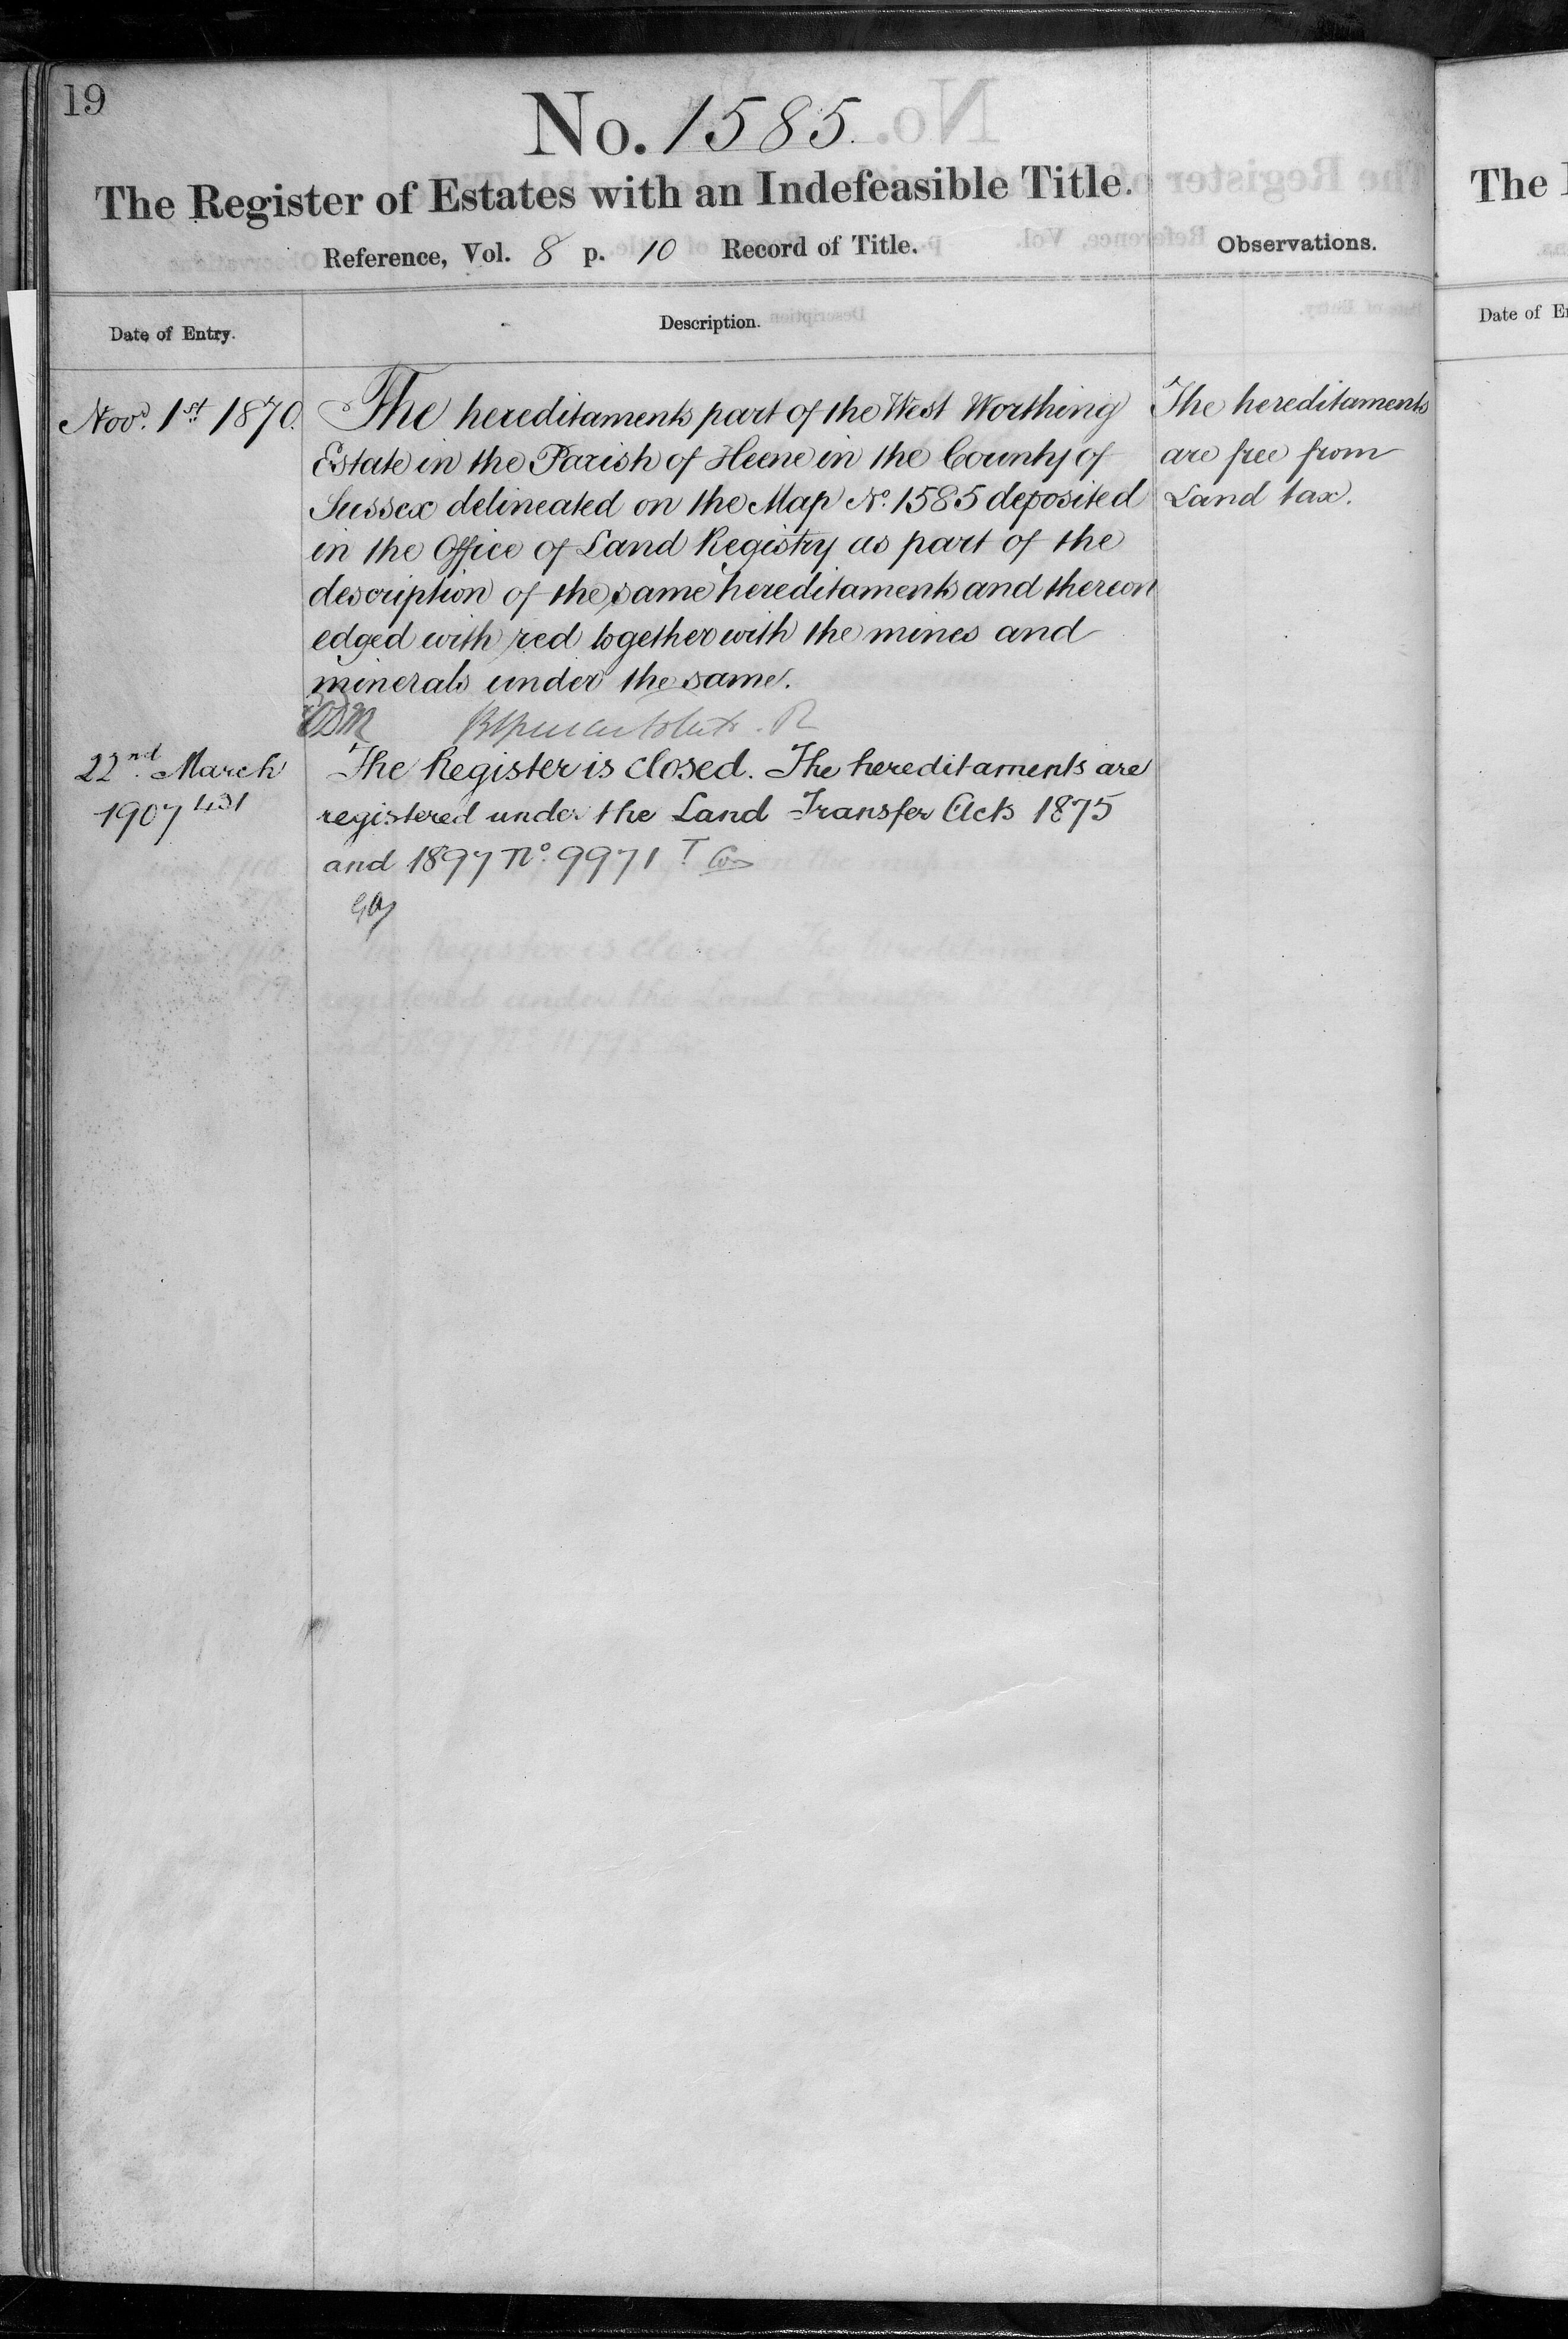 19
No. 1585.
The Register of Estates with an Indefeasible Title.
Reference, Vol. 8 p. 10 Record of Title.
Observations.
Date of Entry.
Description.
Novr. 1st 1870.
The hereditaments part of the West Worthing
Estate in the Parish of Heene in the County of
Sussex delineated on the Map No. 1585 deposited
in the Office of Land Registry as part of the
description of the same hereditaments and thereon
edged with red together with the mines and
minerals under the same.
The hereditaments
are free from
Land tax.
22nd. March
1907 431
The Register is closed. The hereditaments are
registered under the Land Transfer Acts 1875
and 1897 No. 9971
The
Date of